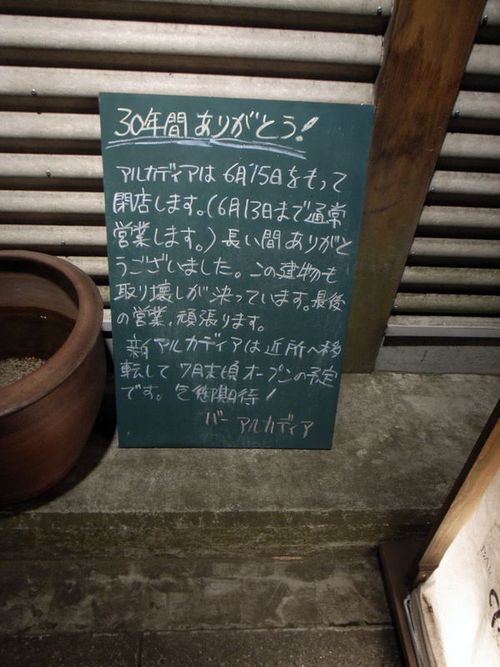 30年間ありがとう!
アルカディアは6月15日をもって
閉店します。(6月13日まで通常
営業します。)長い間ありがと
うございました。この建物も
取り壊しが決っています。最後
の営業、頑張ります。
新アルカディアは近所へ移
転して7月末頃オープンの予定
です。乞御期待!
バー アルカディア